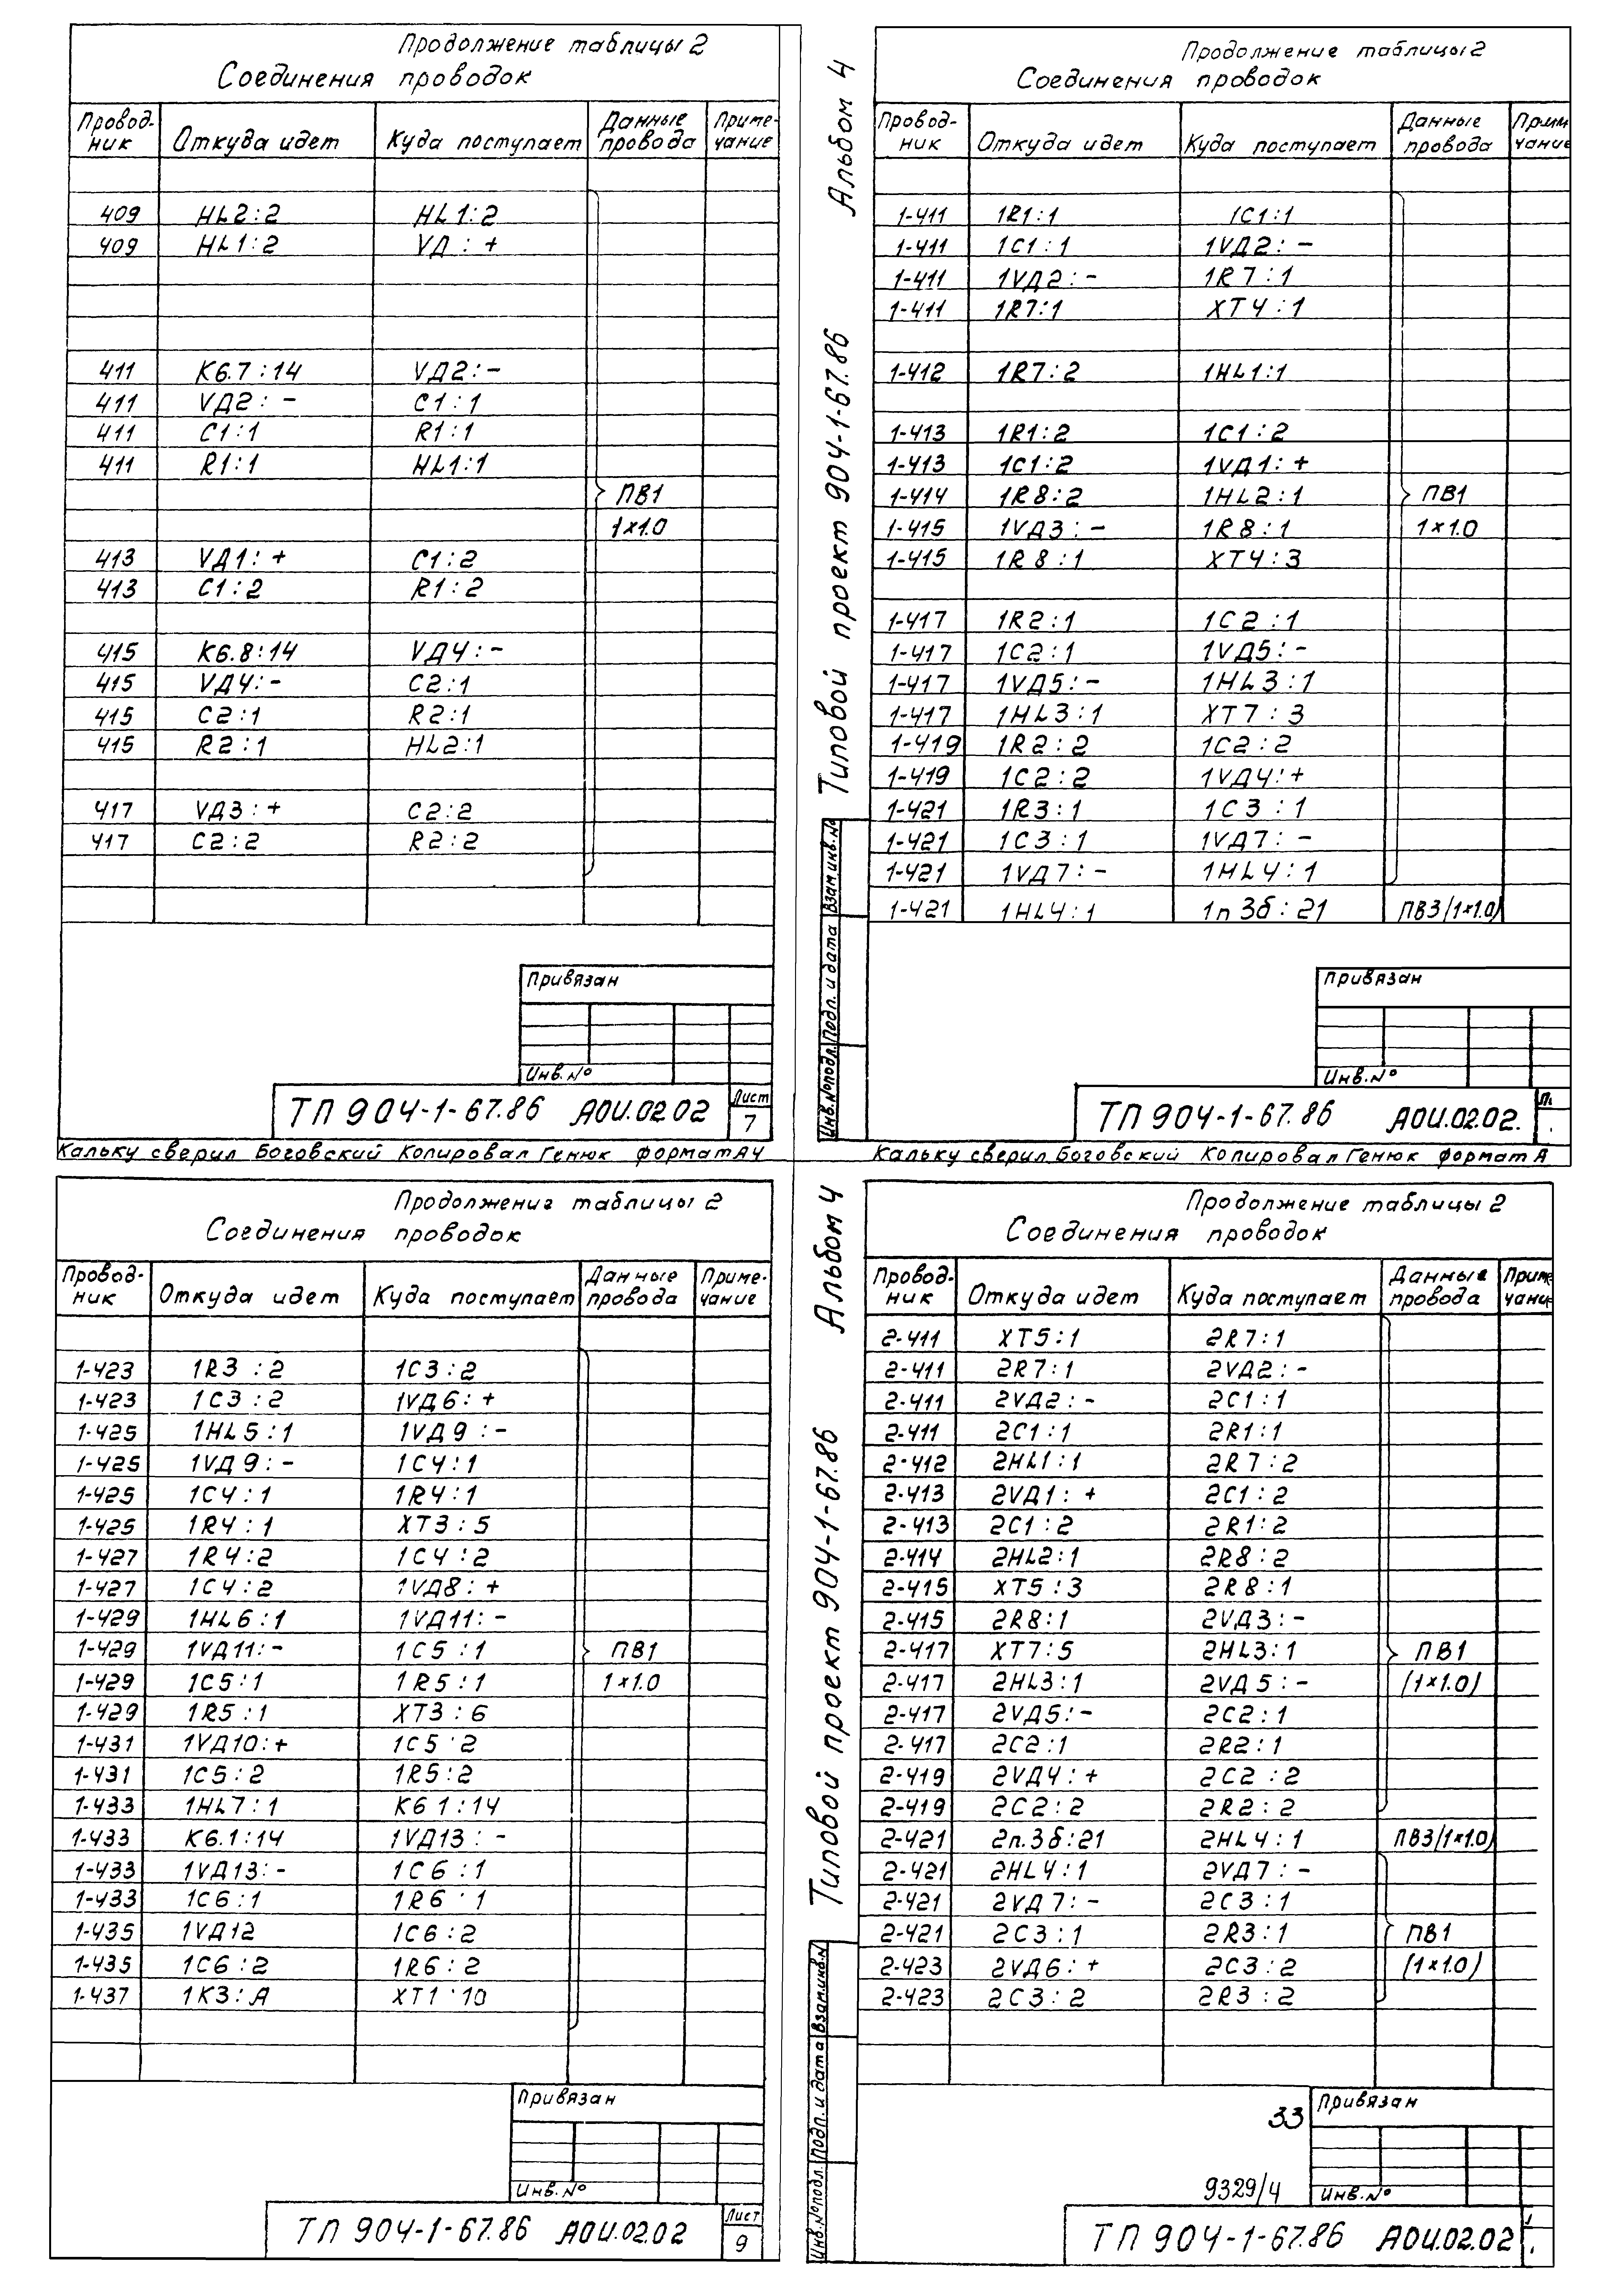 Продолжение таблицы 2
Соединения проводок
Провод- Откуда идет Куда поступает Данные Приме-
ник провода чание
409 HL2:2 HL1:2
409 HL1:2 VД : +
411 К6.7:14 VД2:-
411 VД2: - C1:1
411 C1:1 R1:1
411 R1:1 HL1:1
ПВ1
1×1.0
413 VД1: + C1:2
413 C1:2 R1:2
415 К6.8:14 VД4:-
415 VД4:- C2:1
415 C2:1 R2:1
415 R2:1 HL2:1
417 VД3: + C2:2
417 C2:2 R2:2
Привязан
Инв.№
ТП 904-1-67.86 АОИ.02.02 Лист
7
Кальку сверил Боговский Копировал Генюк формат А4
Альбом 4
Типовой проект 904-1-67.86
Взам.инв.№
Подп. и дата
Инв.№подл.
Продолжение таблицы 2
Соединения проводок
Провод- Откуда идет Куда поступает Данные Прим
ник провода чание
1-411 1R1:1 1C1:1
1-411 1C1:1 1VД2: -
1-411 1VД2: - 1R7:1
1-411 1R7:1 XT4:1
1-412 1R7:2 1HL1:1
1-413 1R1:2 1C1:2
1-413 1C1:2 1VД1: +
1-414 1R8:2 1HL2:1 ПВ1
1-415 1VД3: - 1R8:1 1×1.0
1-415 1R8:1 XT4:3
1-417 1R2:1 1C2:1
1-417 1C2:1 1VД5: -
1-417 1VД5: - 1HL3:1
1-417 1HL3:1 XT7:3
1-419 1R2:2 1C2:2
1-419 1C2:2 1VД4:+
1-421 1R3:1 1C3:1
1-421 1C3:1 1VД7: -
1-421 1VД7: - 1HL4:1
1-421 1HL4:1 1п 3б:21 ПВ3/1×1.0)
Привязан
Инв.№
ТП 904-1-67.86 АОИ.02.02.
Кальку сверил Боговский Копировал Генюк формат А
Продолжение таблицы 2
Соединения проводок
Провод- Откуда идет Куда поступает Данные Приме-
ник провода чание
1-423 1R3:2 1C3:2
1-423 1C3:2 1VД6: +
1-425 1HL5:1 1VД9:-
1-425 1VД9:- 1C4:1
1-425 1C4:1 1R4:1
1-425 1R4:1 XT3:5
1-427 1R4:2 1C4:2
1-427 1C4:2 1VД8: +
1-429 1HL6:1 1VД11:-
1-429 1VД11:- 1C5:1 ПВ1
1-429 1C5:1 1R5:1 1×1.0
1-429 1R5:1 XT3:6
1-431 1VД10:+ 1C5·2
1-431 1C5:2 1R5:2
1-433 1HL7:1 К6 1:14
1-433 К6.1:14 1VД13: -
1-433 1VД13:- 1C6:1
1-433 1C6:1 1R6·1
1-435 1VД12 1C6:2
1-435 1C6:2 1R6:2
1-437 1К3:А XT1·10
Привязан
Инв.№
ТП 904-1-67.86 АОИ.02.02 Лист
9
Альбом 4
Типовой проект 904-1-67.86
Взам.инв.№
Подп. и дата
Инв.№подл.
Продолжение таблицы 2
Соединения проводок
Провод- Откуда идет Куда поступает Данные Приме
ник провода чани
2-411 XT5:1 2R7:1
2-411 2R7:1 2VД2: -
2-411 2VД2: - 2C1:1
2-411 2C1:1 2R1:1
2-412 2HL1:1 2R7:2
2-413 2VД1: + 2C1:2
2-413 2C1:2 2R1:2
2-414 2HL2:1 2R8:2
2-415 XT5:3 2R8:1
2-415 2R8:1 2VД3:-
2-417 XT7:5 2HL3:1 ПВ1
2-417 2HL3:1 2VД5: - (1×1.0)
2-417 2VД5:- 2C2:1
2-417 2C2:1 2R2:1
2-419 2VД4: + 2C2:2
2-419 2C2:2 2R2:2
2-421 2п.3б:21 2HL4:1 ПВ3/1×1.0)
2-421 2HL4:1 2VД7: -
2-421 2VД7:- 2C3:1
2-421 2C3:1 2R3:1 ПВ1
2-423 2VД6: + 2C3:2 (1×1.0)
2-423 2C3:2 2R3:2
33 Привязан
9329/4 Инв.№
ТП 904-1-67.86 АОИ.02.02